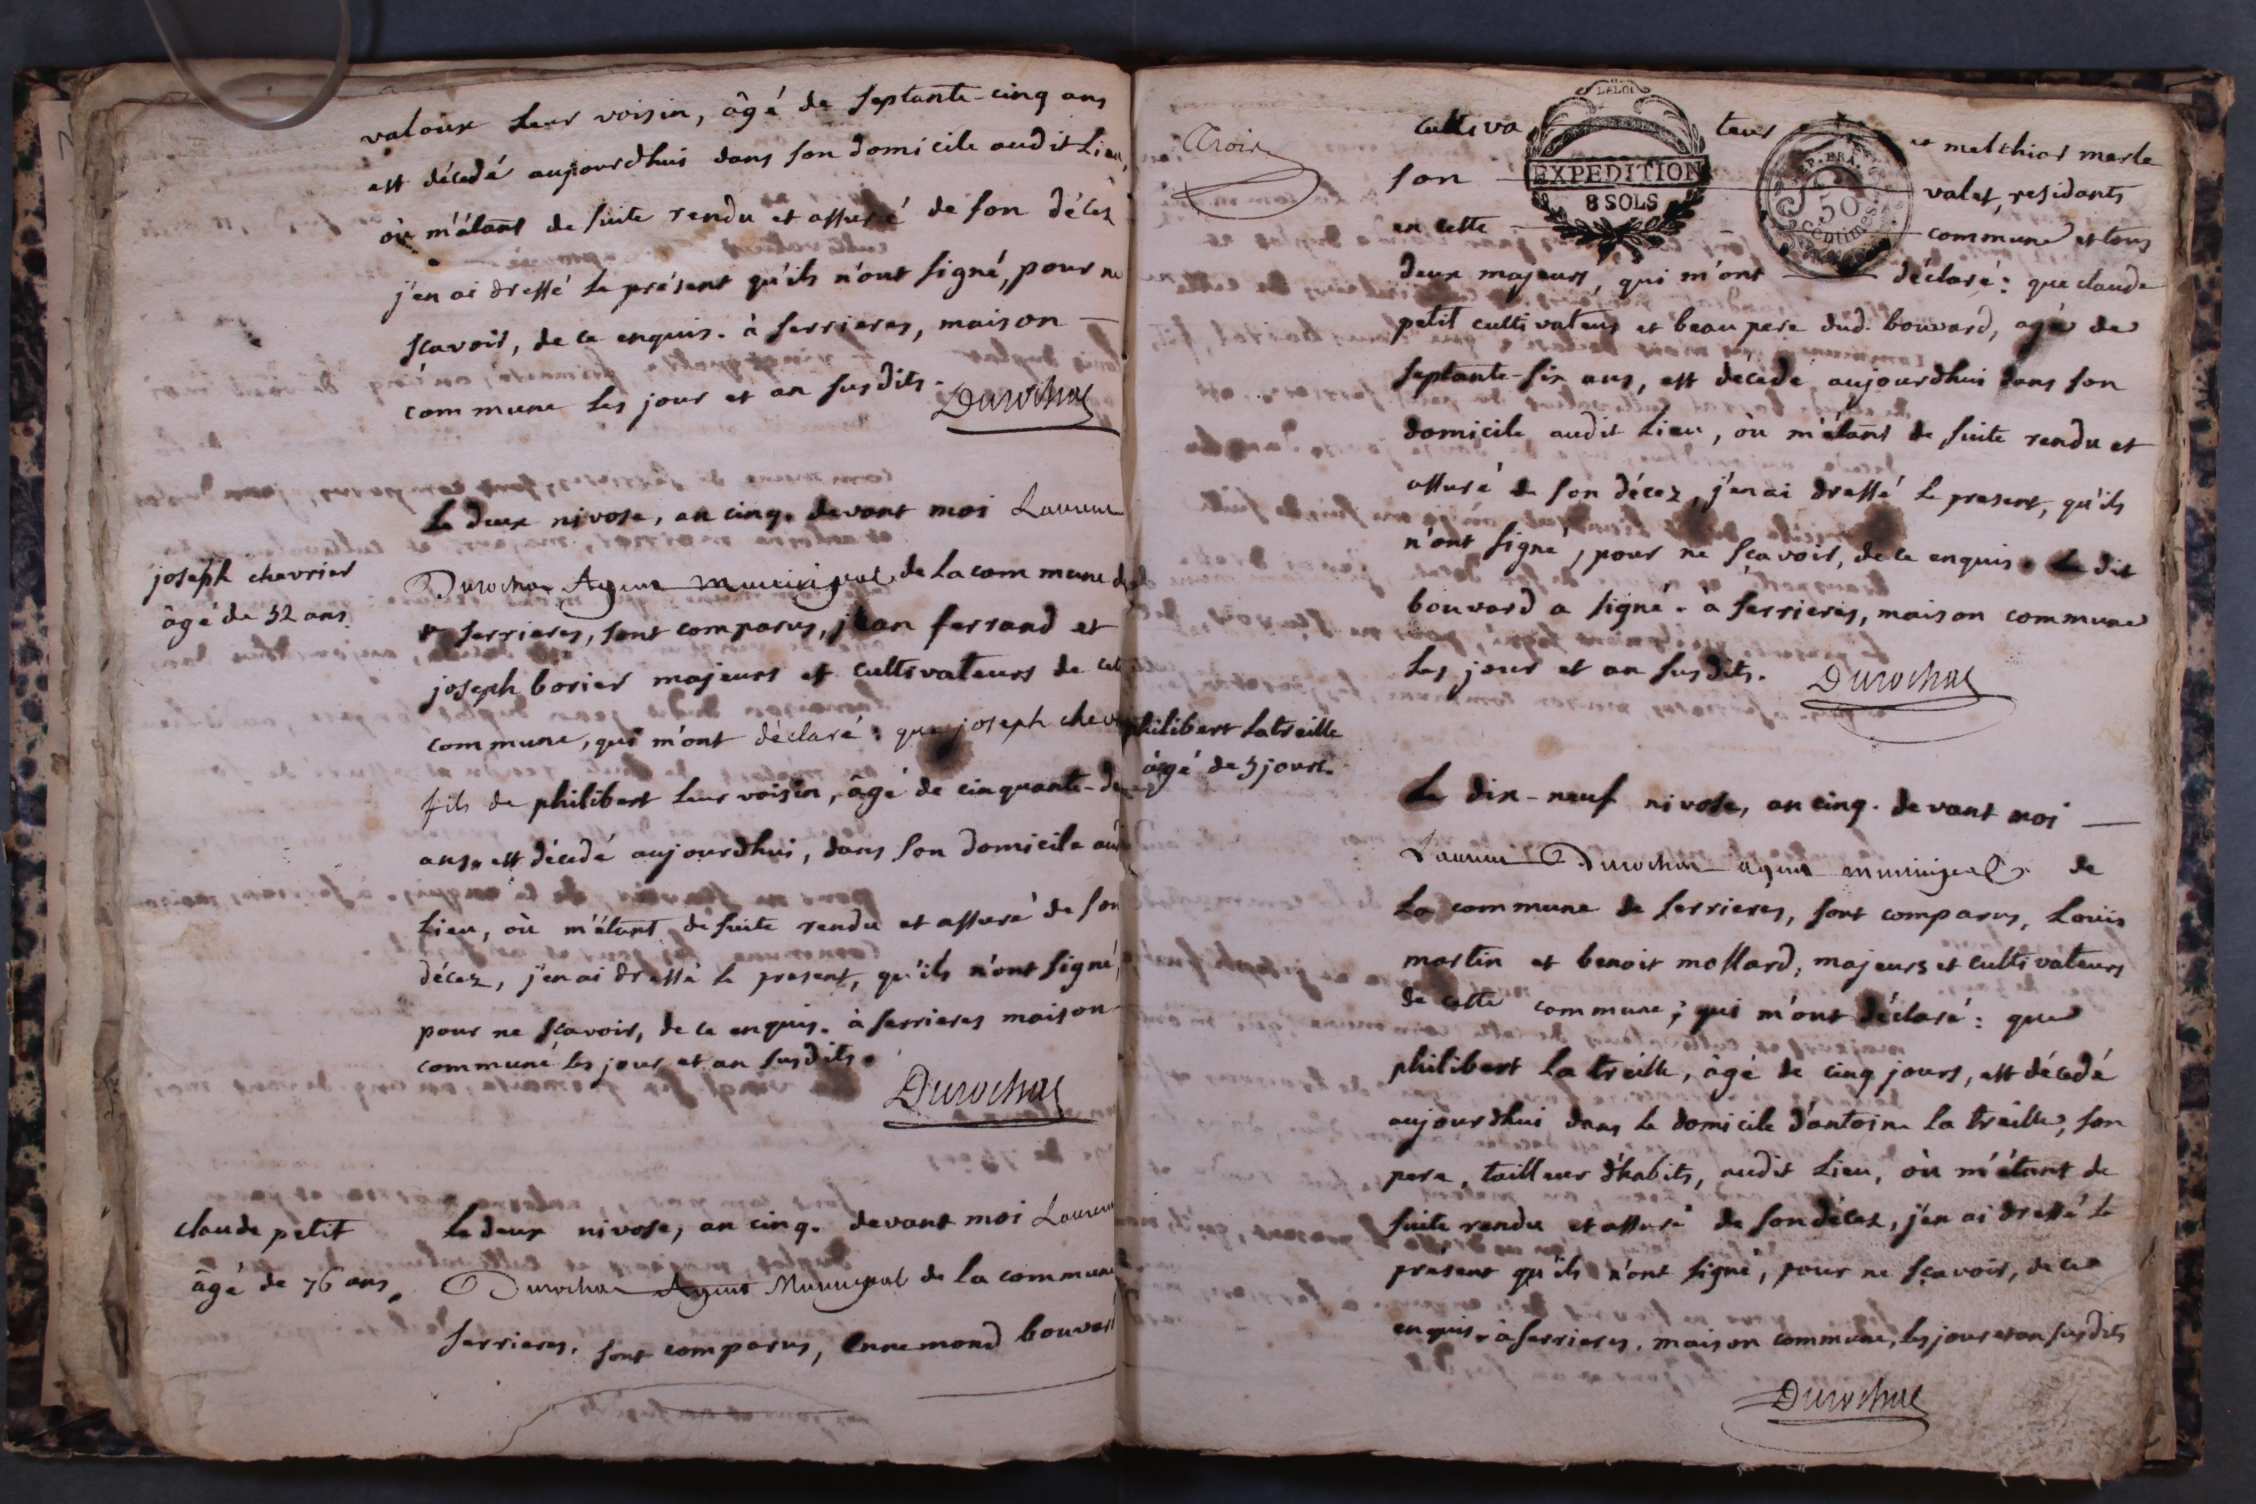 valoux leur voisin, âgé de septante-cinq ans
est décedé aujourdhui dans son domicile audit Lieu,
où m'étant de suite rendu et assuré de son décez
j'en ai dressé le présent qu'ils n'ont signé, pour ne
sçavoir, de ce enquis. à serrieres, maison
commune les jour et an susdits.
Durochat
joseph chevrier
âgé de 52 ans
Le deux nivose, an cinq. devant moi Laurent
Durochat Agent municipal de la commune de
serrieres, sont comparus, jean ferrand et
joseph borier majeurs et cultivateurs de cette
commune, qui m'ont déclaré : que joseph chev
fils de philibert leur voisin, âgé de cinquante-de
ans, est décedé aujourdhui, dans son domicile au
Lieu, où m'étant de suite rendu et assuré de son
décez, j'en ai dressé le present, qu'ils n'ont signé,
pour ne sçavoir, de ce enquis. à serrieres maison
commune les jour et an susdits.
Durochat
claude petit
âgé de 76 ans.
Le deux nivose, an cinq. devant moi Laurent
Durochat Agent Municipal de la commune
serrieres, sont comparus, Ennemond bouvard
Trois
LA LOI
EXPEDITION
8 SOLS
50
Centimes
cultivateur et melchior merle
son valet, residants
en cette commune et tous
deux majeurs, qui m'ont déclaré : que claude
petit cultivateur et beau pere dud. bouvard, agé de
septante-six ans, est decedé aujourdhui dans son
domicile audit Lieu, où m'étant de suite rendu et
assuré de son décez, j'en ai dressé le present, qu'ils
n'ont signé, pour ne sçavoir, de ce enquis. Le dit
bouvard a signé. à serrieres, maison commune
les jour et an susdits.
Durochat
philibert Latreille
âgé de 5 jours.
Le dix-neuf nivose, an cinq. devant moi
Laurent Durochat agent municipal de
La commune de serrieres, sont comparus, Louis
martin et benoit mollard, majeurs et cultivateurs
de cette commune; qui m'ont déclaré : que
philibert La treille, âgé de cinq jours, est décedé
aujourdhui dans le domicile d'antoine la treille, son
pere, tailleur d'habits, audit Lieu, où m'étant de
suite rendu et assuré de son décez, j'en ai dressé le
présent qu'ils n'ont signé, pour ne sçavoir, de ce
enquis. à serrieres, maison commune, les jour et an susdits
Durochat